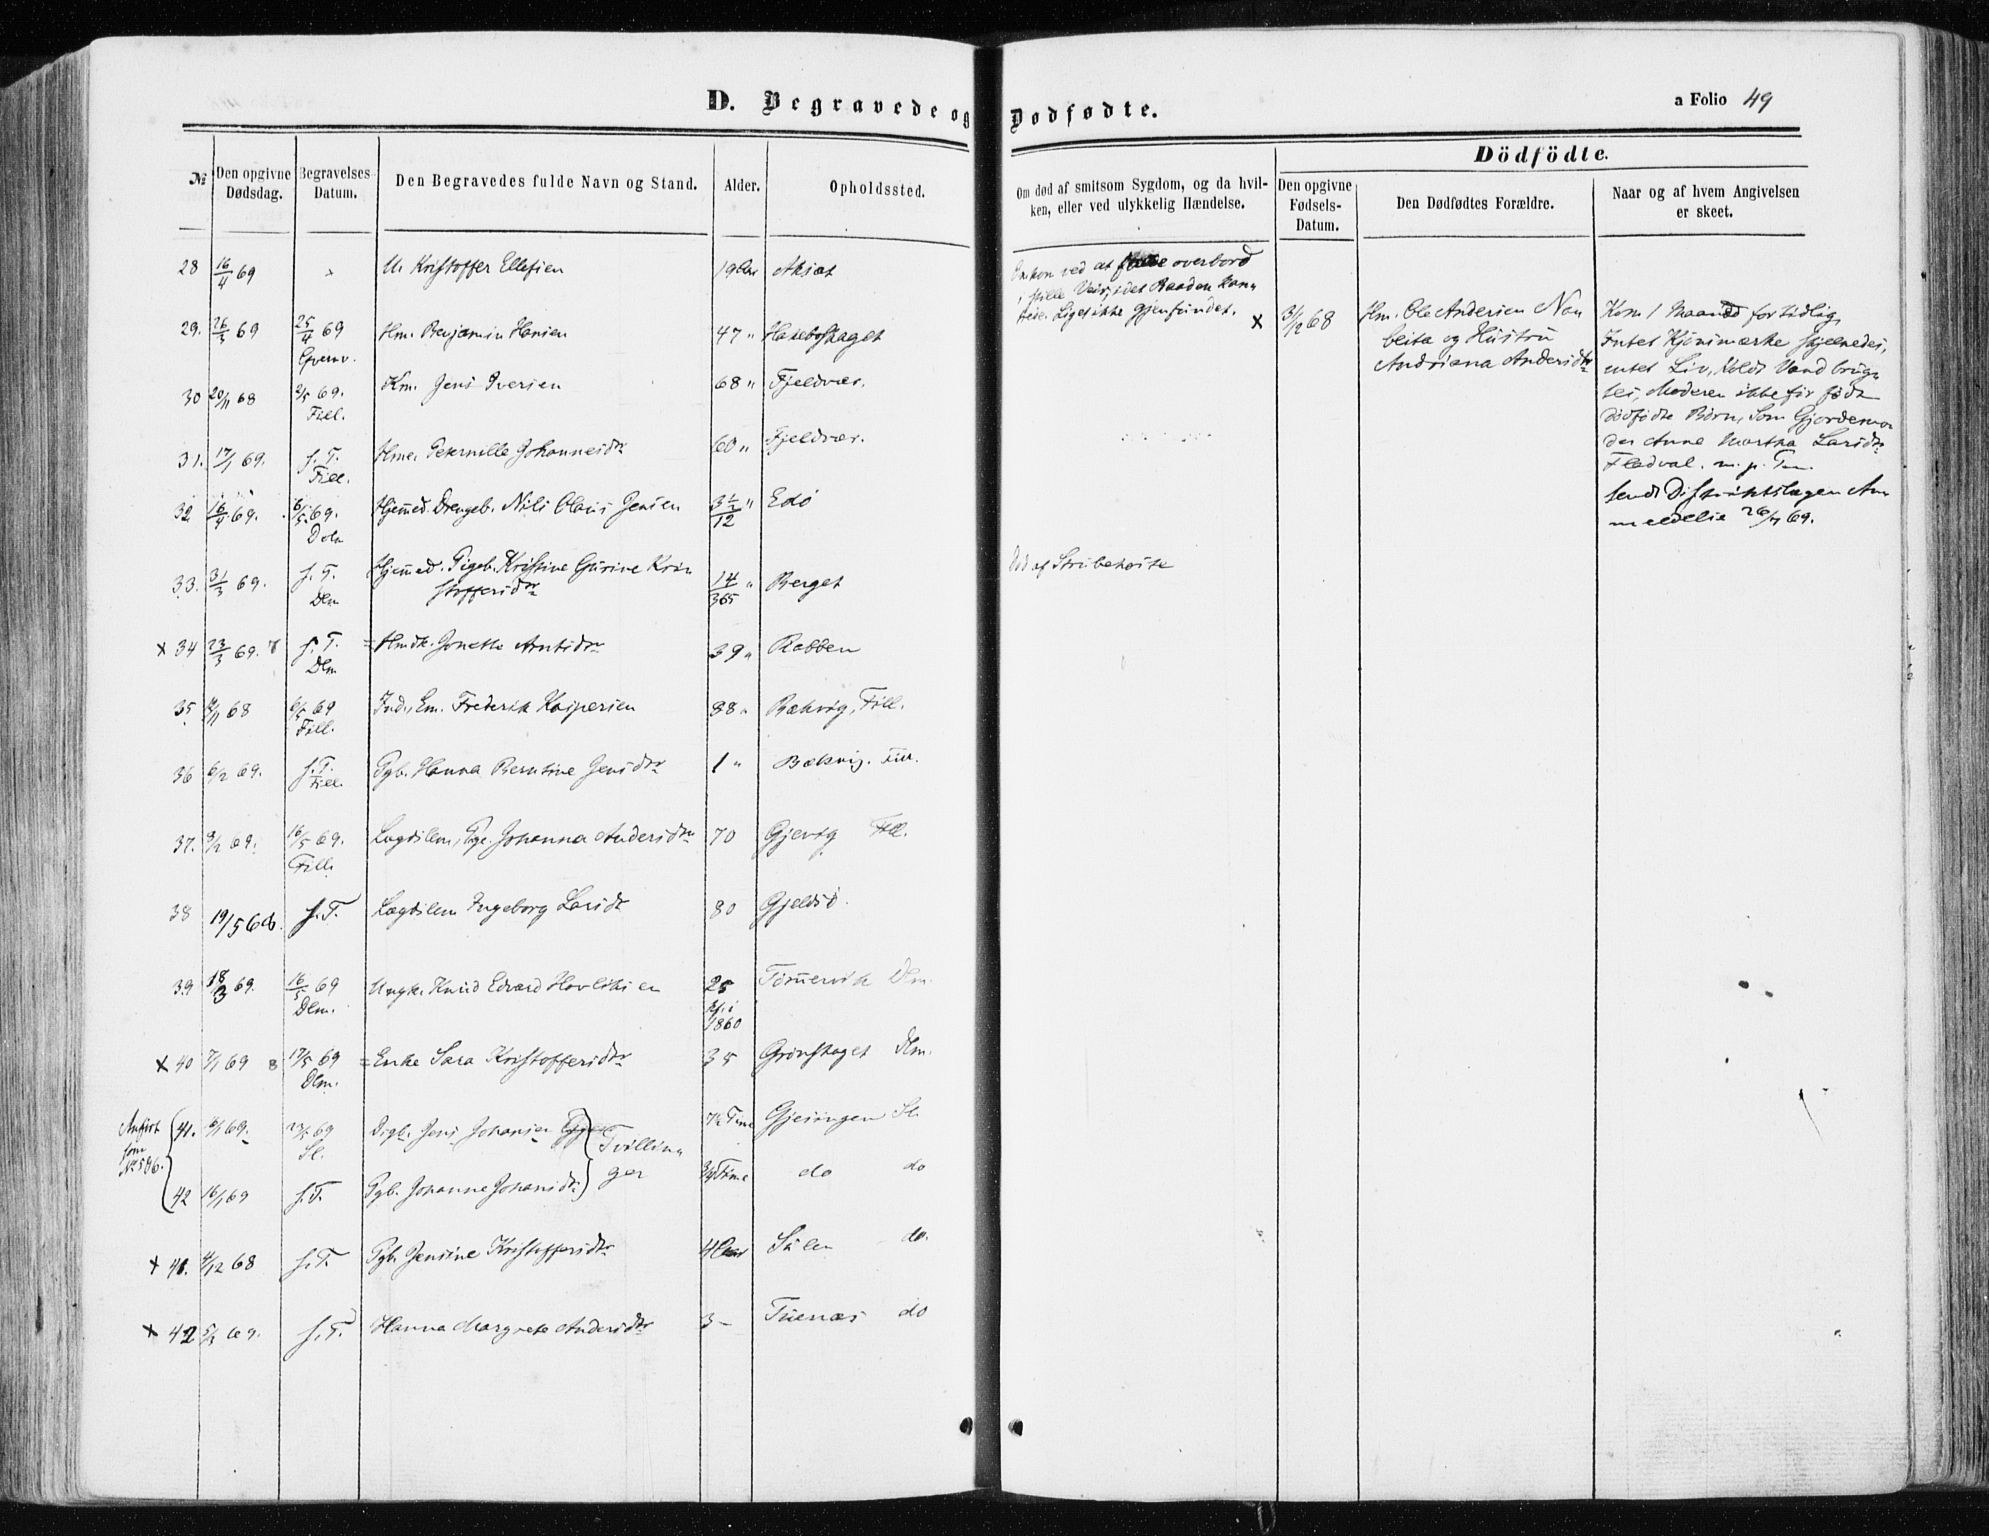 D. Begravede og Dødfødte.
a Folio 49
Dödfödte.
№
Den opgivne Dødsdag.
Begravelses Datum.
Den Begravedes fulde Navn og Stand.
Alder.
Opholdssted.
Om død af smitsom Sygdom, og da hvil-
ken, eller ved ulykkelig Hændelse.
Den opgivne Fødsels-Datum.
Den Dødfødtes Forældre.
Naar og af hvem Angivelsen er skeet.
28 16/4 69 U. Kristoffer Ellefsen 19 Aar
Omkom ved at falde overbord
i stille Veir, idet Baaden kan-
trede. Liget ikke gjenfundet.
29. 26/3 69 25/4 69 Hm. Benjamin Hansen 47 "
x 31/12 68 Hm. Ole Andersen
og Hustru
Andriana Andersdtr
Kom 1 Maaned for tidlig,
Intet Kjönsmærke skjelnedes,
intet Liv, Koldt Vand brug-
tes, Moderen ikke før født
dödfödte Börn, Som Gjordemo-
der Anne Martha Larsdtr
Fladval. m. p. Tm.
sendt Distriktslægen An-
meldelse 26/4 69.
30 20/11 68 2/5 69. Fill. Km. Jens Iversen 68 " Fjeldvær.
31. 17/1 69. s. T. Fill. Hme. Peternille Johannesdtr 60 " Fjeldvær.
32 16/4 69. 6/5 69. Dolm Hjemmed. Drengeb. Nils Olaus Jensen Edö
33. 31/3 69. s. T. Dlm Hjemmed. Pigeb. Kristine Gurine Kri-
stoffersdtr 14/365 " Berget
Död af Strubehoste
x 34 23/3 69. s. T. Dlm Jonetta Arntsdtr 39 " Rabben
35 68 6/5 69 Fill. Ind., Em. Frederik Kaspersen 88 " Bækvig, Fill.
36 6/2 69. s. T. Fill. Pgb. Hanna Berntine Jensdtr 1 " Bækvig. Fill.
37. 9/2 69. 16/5 69. Fill. Lægdslem, Pge. Johanna Andersdtr 70 Gjevig Fill.
38 19/5 68. s. T. Lægdslem Ingeborg Larsdtr 80 Gjeldsö.
39 18/3 69. 16/5 69 Dlm. Ungk. Knud Edvard 25 Dlm.
1860
x 40 7/1 69 8 17/5 69 Dlm. = Enke Sara Kristoffersdtr 35 Grönskaget Dlm.
Anfört
som
41. 69. 23/5 69 Sl. Drgb. Jens Johansen Tvillin- Gjesingen Sl.
42 16/1 69 s. T. Pgb. Johanne Johansdtr ger 3/4 Time do do
x 41. 4/12 68 s. T. Pgb. Jensine Kristoffersdtr 4 Aar do.
x 42 69. s. T. Hanna Margrete Andersdtr 3 – Tuenæs do